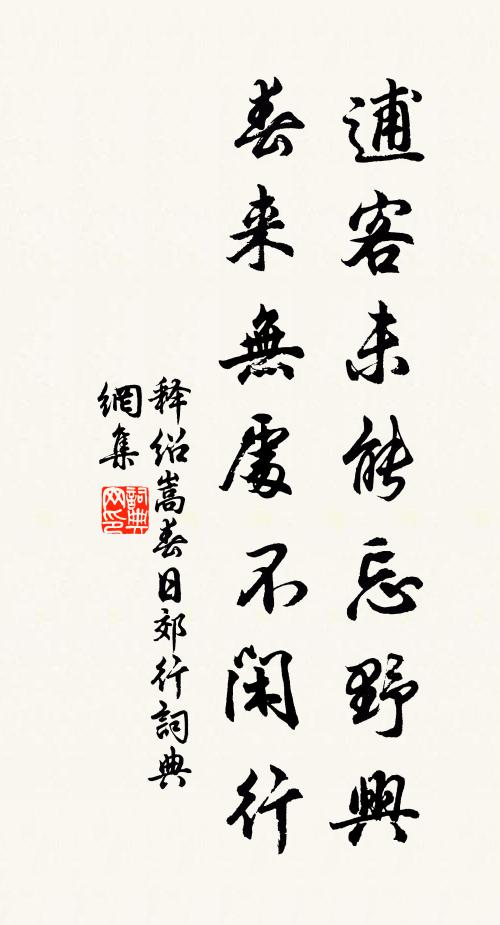 逋客未能忘野興
春來無處不閑行
释紹嵩春日郊行詞典
網集
詞典网印